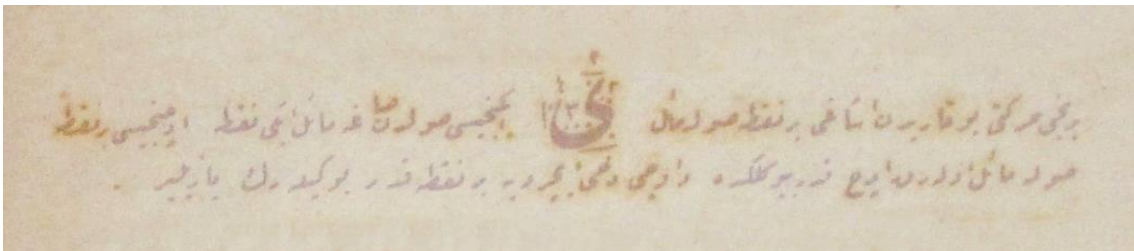 برنجی حرکتی یوقاریدن اشاغی بر نقطه صوله مائل ایکنجیسی صولدن صاغه مائل ایکی نقطه اوچنجیسی بر نقطه
صوله مائل اوله رق اوج قدر یوکسکلکده واوجی دخی ایچرویه بر نقطه قدر بوکیله رك یازیلیر .